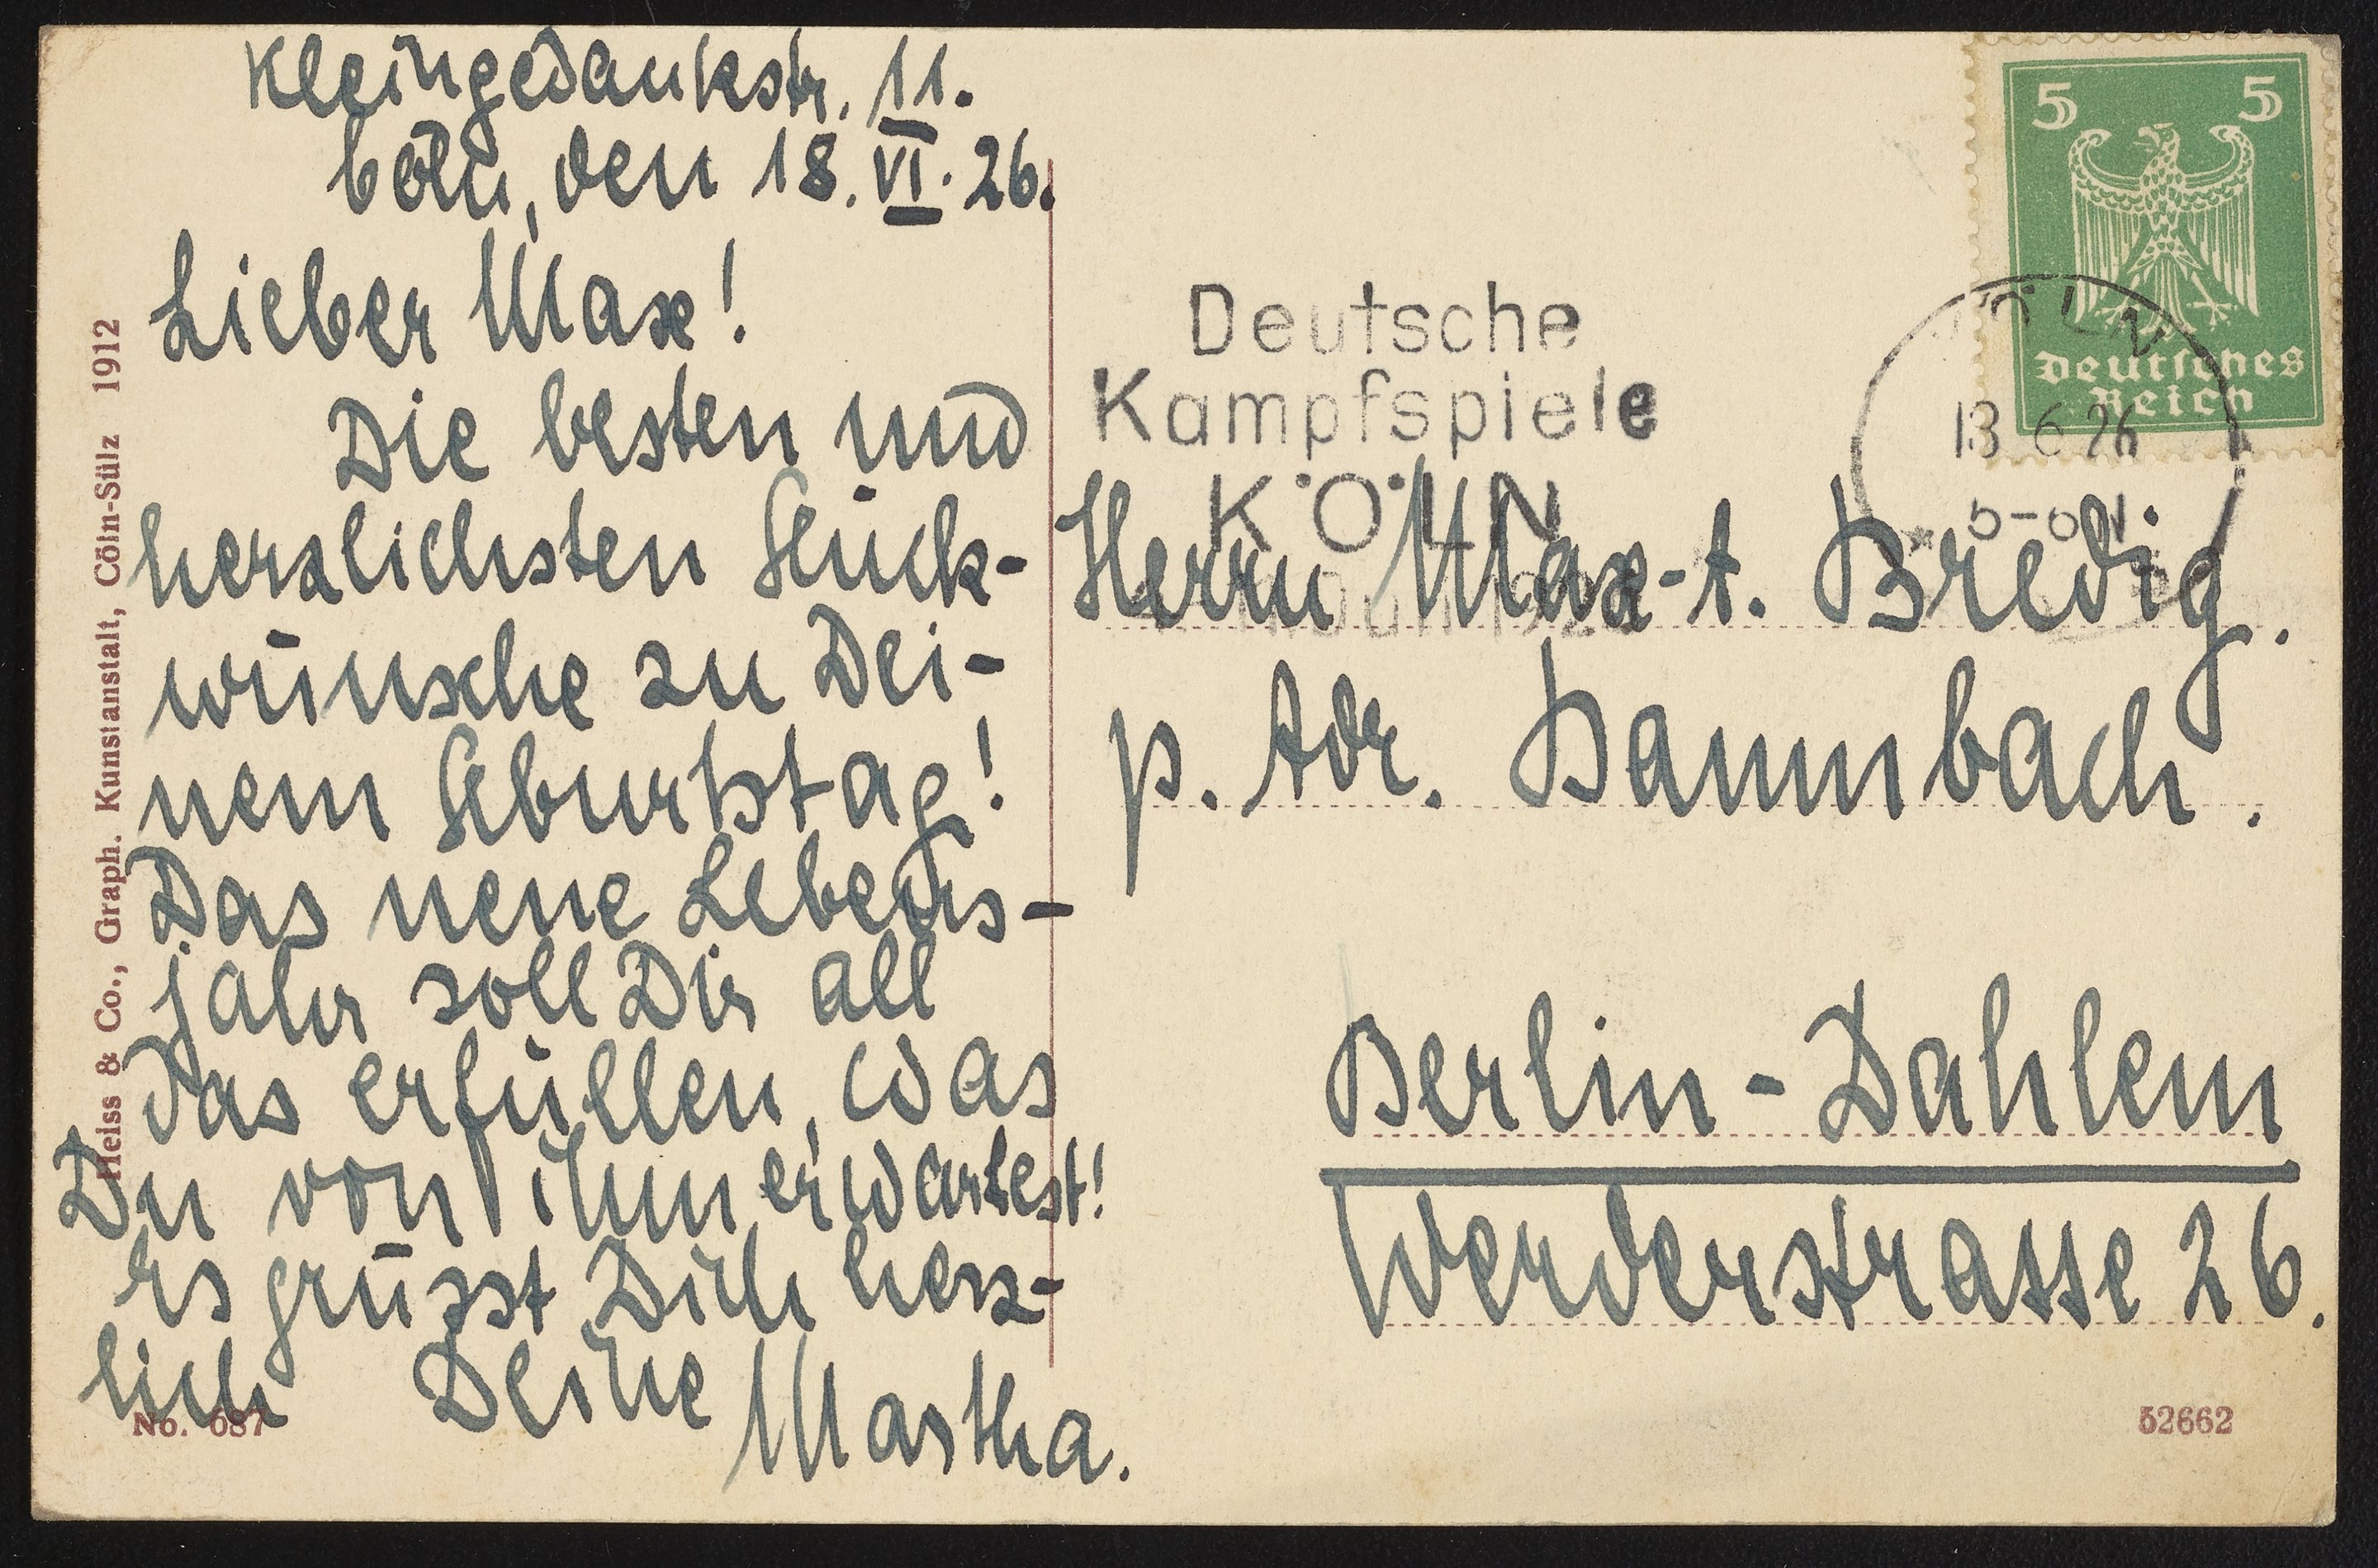 Kleingedankstr. 11.
Cöln, den 18. VI. 26.
Lieber Max!
Die besten und
herzlichsten Glück-
wünsche zu Dei-
nem Geburtstag!
Das neue Lebens-
jahr soll Dir all
das erfüllen, was
Du von ihm erwartest!
Es grüsst Dich herz-
lich Deine Martha.
Heiss & Co., Graph. Kunstanstalt, Cöln-Sülz 1912
No. 687
5 5
Deutsches
Reich
KÖLN
18 6 26
Deutsche
Kampfspiele
KÖLN
Juli 1926
Herrn Max A. Bredig.
p. Adr. Dannbach.
Berlin-Dahlem
Werderstrasse 26.
52662